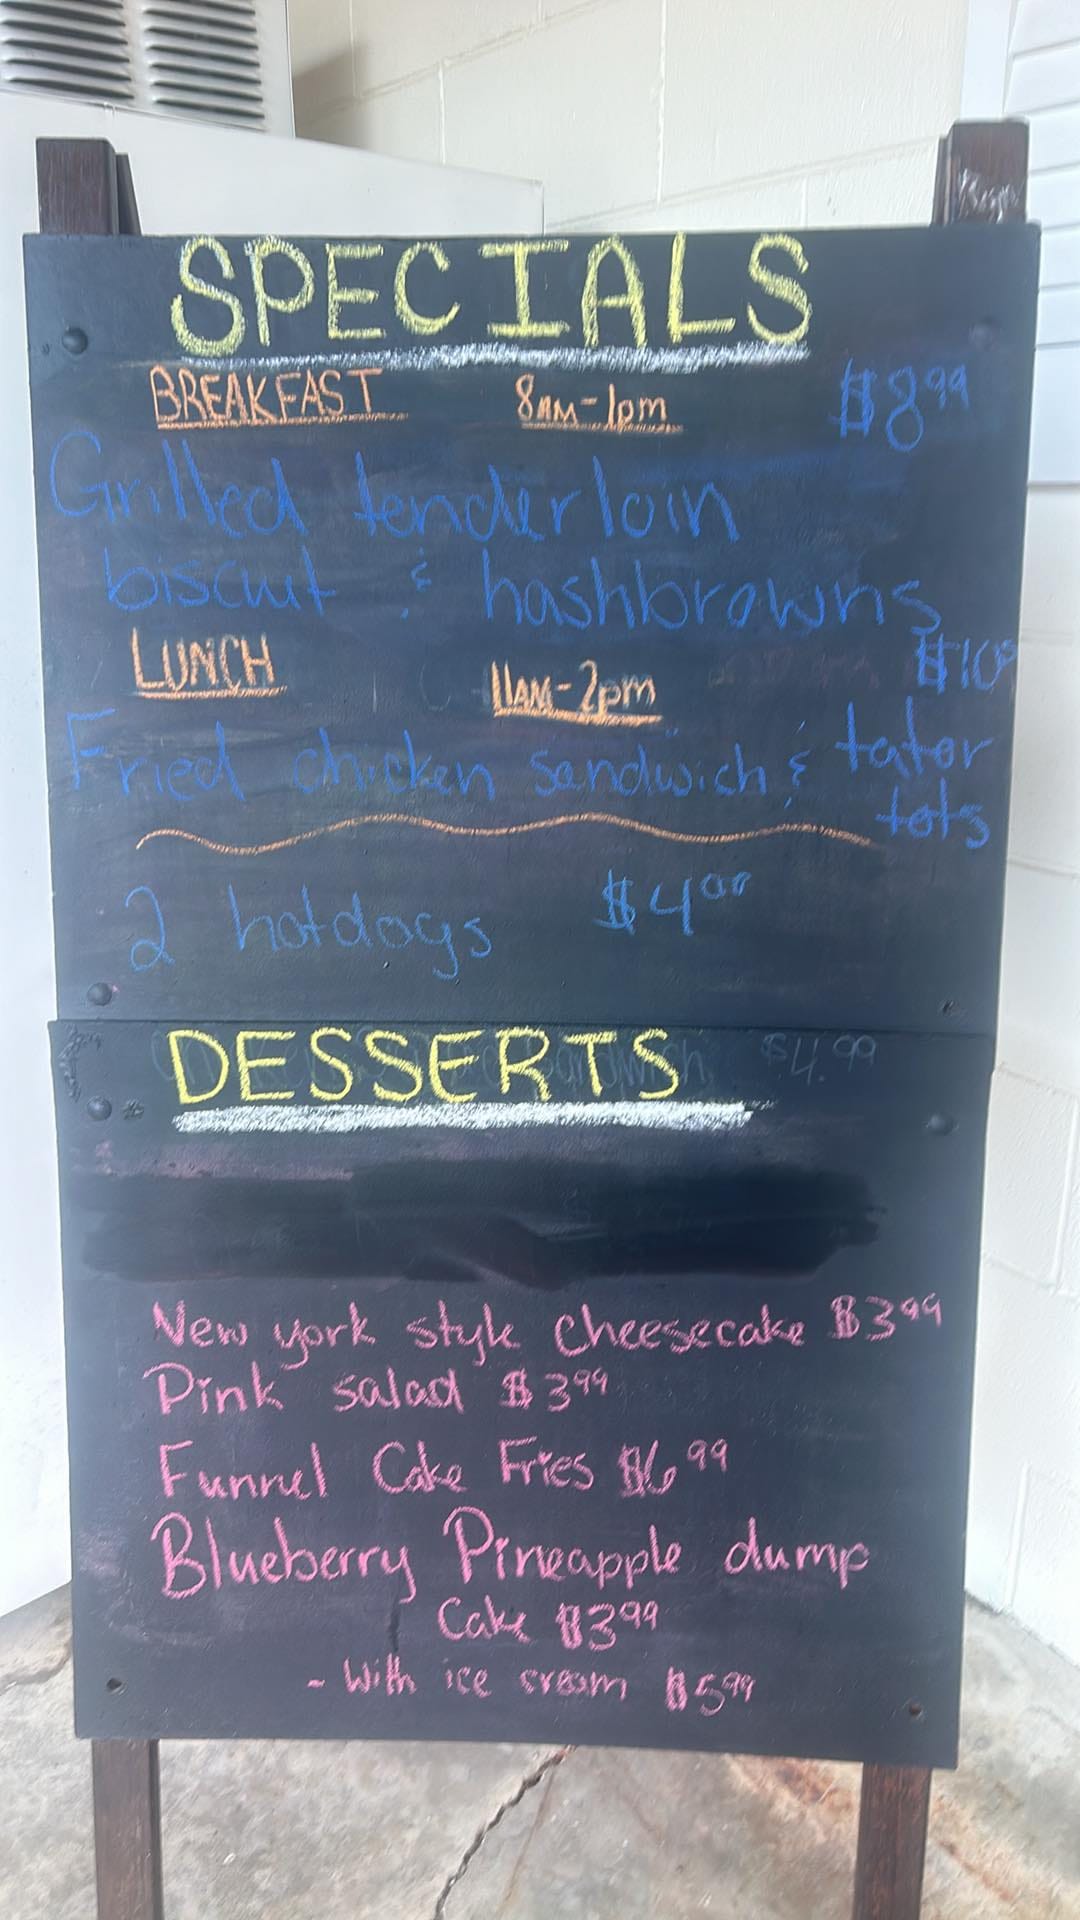 SPECIALS
BREAKFAST 8am-1pm $8.99
Grilled tenderloin
biscuit & hashbrowns
LUNCH 11AM-2pm
Fried chicken sandwich & tator
tots
2 hotdogs $4.00
DESSERTS $4.99
New york style cheesecake $3.99
Pink salad $3.99
Funnel Cake Fries $6.99
Blueberry Pineapple dump
Cake $3.99
- With ice cream $5.99